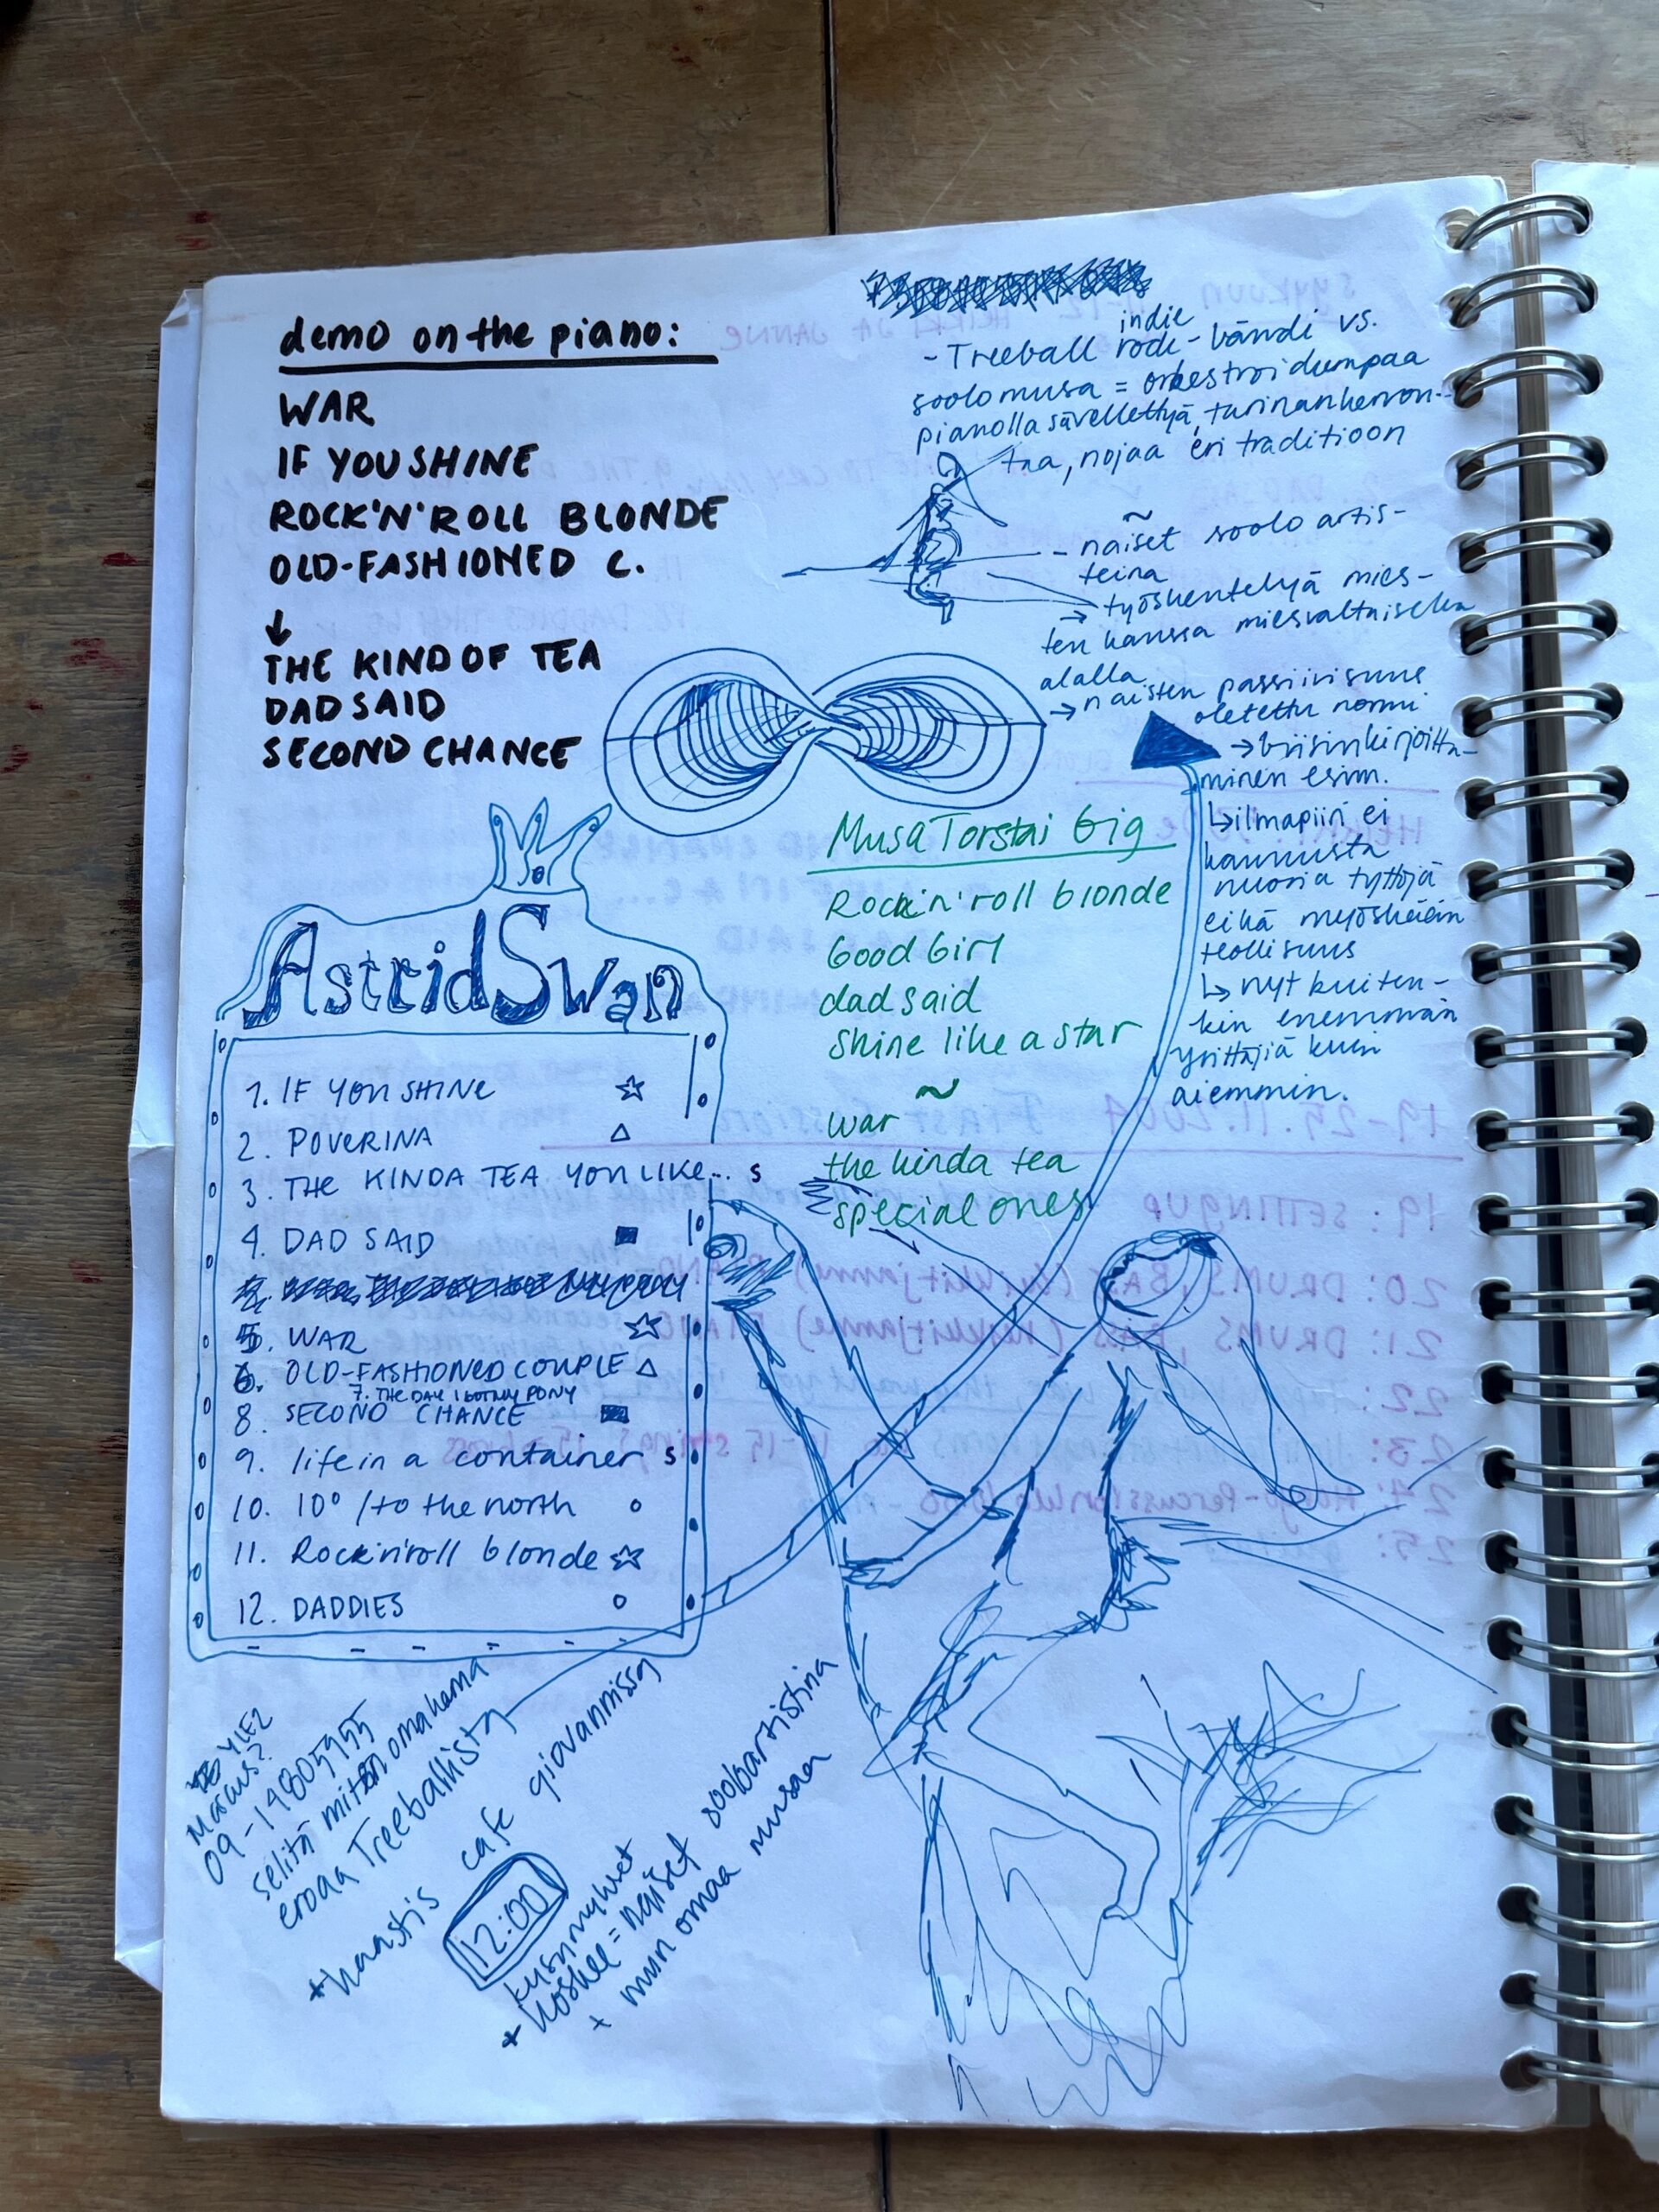 demo on the piano:
WAR
IF YOU SHINE
ROCK'N'ROLL BLONDE
OLD-FASHIONED C.
↓
THE KIND OF TEA
DAD SAID
SECOND CHANCE
indie
- Treeball rock-bändi vs.
soolomusa = orkestroidumpaa
pianolla sävellettyä, tarinankerron-
taa, nojaa eri traditioon
~
- naiset soolo artis-
teina
→ työskentelyä mies-
ten kanssa miesvaltaisella
alalla
→ naisten passiivisuus
oletettu normi
→ biisinkirjoitta-
minen esim.
↳ ilmapiiri ei
kannusta
nuoria tyttöjä
eikä myöskään
teollisuus
↳ nyt kuiten-
kin enemmän
yrittäjiä kuin
aiemmin.
Musa Torstai Gig
Rock'n'roll blonde
Good Girl
dad said
Shine like a star
~
war
the kinda tea
special ones
Astrid Swan
1. IF YOU SHINE ☆
2. POVERINA △
3. THE KINDA TEA YOU LIKE... s
4. DAD SAID ■
5. WAR ☆
6. OLD-FASHIONED COUPLE △
7. THE DAY I GOT MY PONY
8. SECOND CHANCE ■
9. life in a container s
10. 10° / to the north o
11. Rock'n'roll blonde ☆
12. DADDIES o
YLEZ
Marcus?
09-19805955
selitä miten omakama
eroaa Treeballista
+ haastis cafe giovannissa
12:00
kysymykset
+ koskee = naiset sooloartistina
+ mun omaa musaa